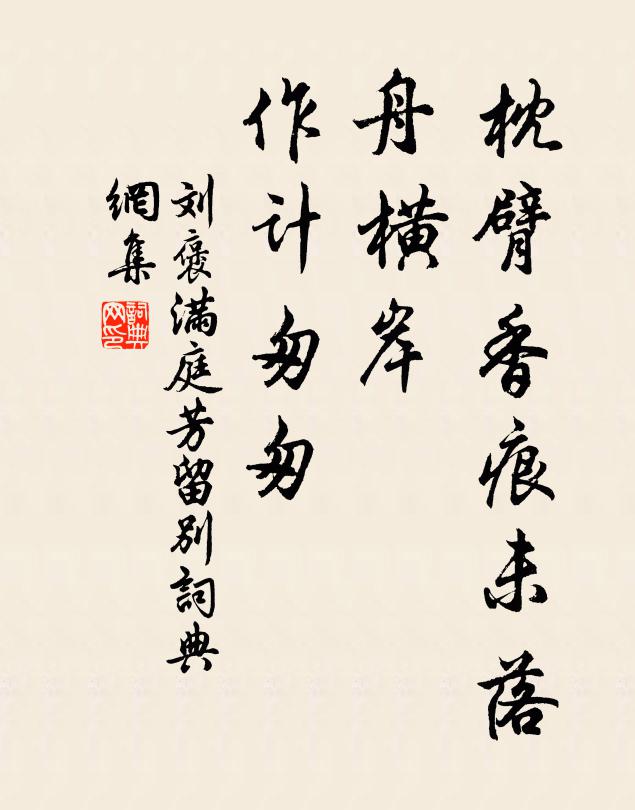 枕臂香痕未落
舟橫岸
作计匆匆
刘褒滿庭芳留别詞典
網集
詞典
网印